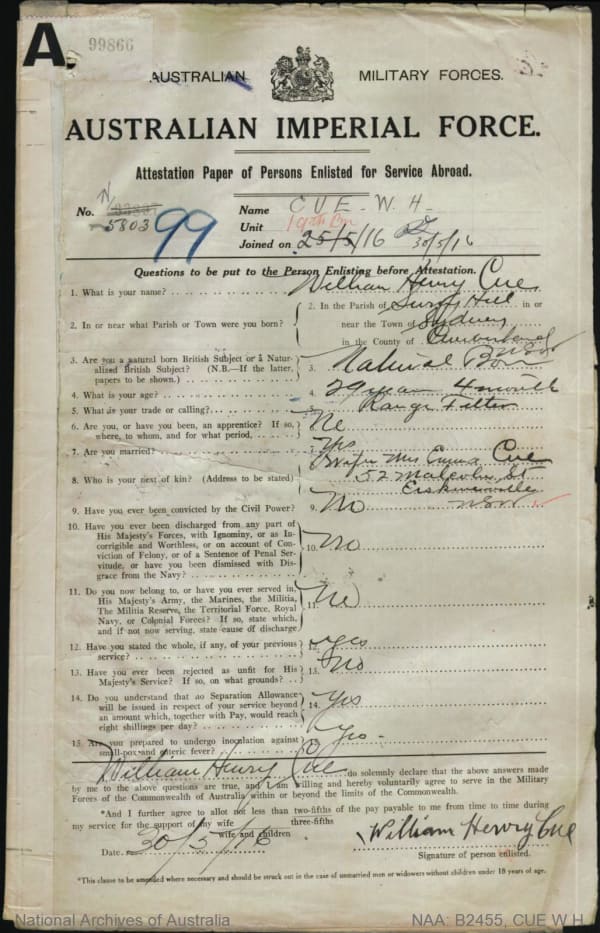 A.
99866
AUSTRALIAN MILITARY FORCES.
AUSTRALIAN IMPERIAL FORCE.
Attestation Paper of Persons Enlisted for Service Abroad.
No. N
5803
99
Name CUE - W. H.
Unit 19th Bn
Joined on 25/5/16 30/5/16
Questions to be put to the Person Enlisting before Attestation.
1. What is your name? William Henry Cue
2. In or near what Parish or Town were you born?
2. In the Parish of Surry Hill in or
near the Town of Sydney
in the County of Cumberland
NSW
3. Are you a natural born British Subject or a Natur-
alized British Subject? (N.B.—If the latter,
papers to be shown.)
3. Natural Born
4. What is your age? 4. 29 years 4 month
5. What is your trade or calling? 5. Range Fitter
6. Are you, or have you been, an apprentice? If so,
where, to whom, and for what period,
6. No
7. Are you married? 7. Yes
8. Who is your next of kin? (Address to be stated)
Wife Mrs Emma Cue
52 Malcolm St
Erskineville
NSW
9. Have you ever been convicted by the Civil Power? 9. No
10. Have you ever been discharged from any part of
His Majesty's Forces, with Ignominy, or as In-
corrigible and Worthless, or on account of Con-
viction of Felony, or of a Sentence of Penal Ser-
vitude, or have you been dismissed with Dis-
grace from the Navy?
10. No
11. Do you now belong to, or have you ever served in,
His Majesty's Army, the Marines, the Militia,
The Militia Reserve, the Territorial Force, Royal
Navy, or Colonial Forces? If so, state which,
and if not now serving, state cause of discharge
11. No
12. Have you stated the whole, if any, of your previous
service?
12. Yes
13. Have you ever been rejected as unfit for His
Majesty's Service? If so, on what grounds?
13. No
14. Do you understand that no Separation Allowance
will be issued in respect of your service beyond
an amount which, together with Pay, would reach
eight shillings per day?
14. Yes
15. Are you prepared to undergo inoculation against
small-pox and enteric fever?
Yes
I, William Henry Cue do solemnly declare that the above answers made
by me to the above questions are true, and I am willing and hereby voluntarily agree to serve in the Military
Forces of the Commonwealth of Australia within or beyond the limits of the Commonwealth.
*And I further agree to allot not less than two-fifths of the pay payable to me from time to time during
three-fifths
my service for the support of my wife
wife and children
Date 30/5/16
William Henry Cue
Signature of person enlisted.
*This clause to be amended where necessary and should be struck out in the case of unmarried men or widowers without children under 18 years of age.
National Archives of Australia
NAA: B2455, CUE W H